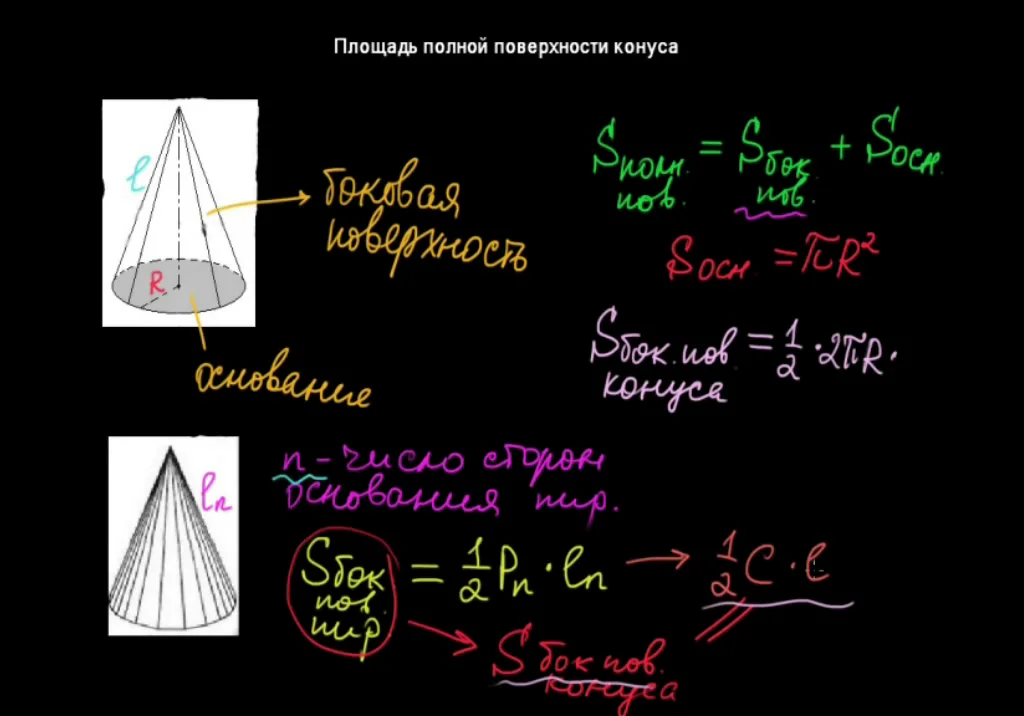 Площадь полной поверхности конуса
l
R
боковая
поверхность
основание
Sполн. пов. = Sбок. пов. + Sосн.
Sосн. = πR²
Sбок. пов. конуса = 1/2 · 2πR ·
lₙ
n – число сторон
основания пир.
Sбок. пов. пир. = 1/2 Pₙ · lₙ → 1/2 C · l
S бок. пов.
конуса